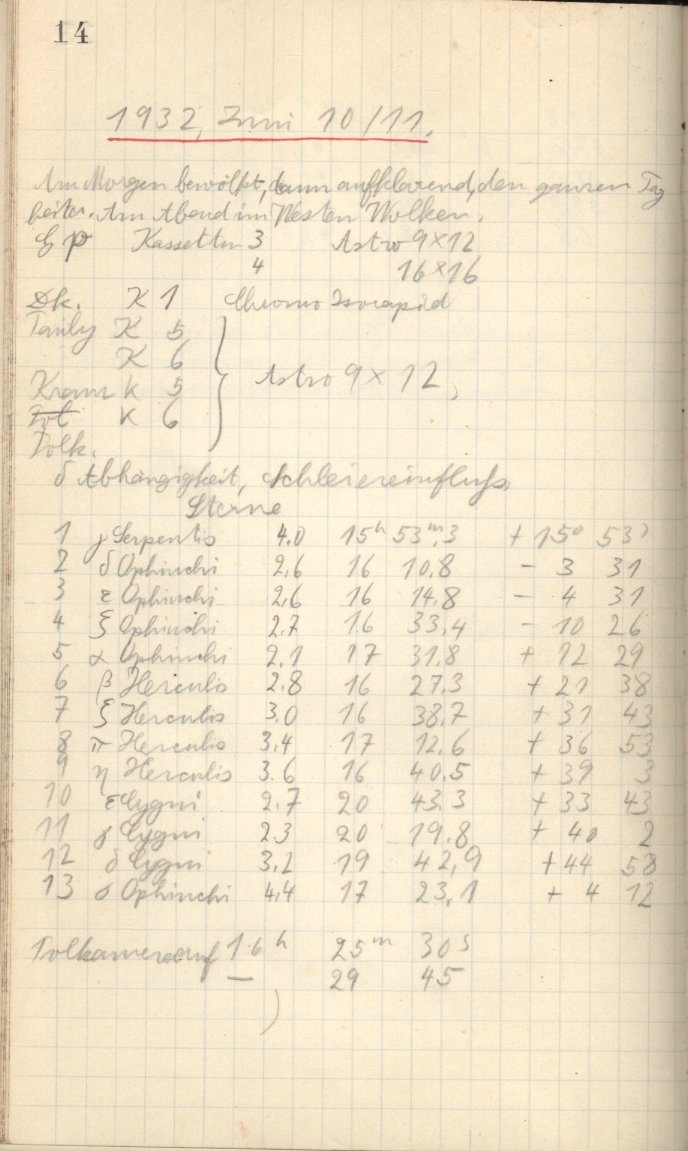 14
1932, Juni 10/11.
Am Morgen bewölkt, dann aufklarend, den ganzen Tag
heiter. Am Abend im Westen Wolken.
Kassetten 3 Astro 9×12
4 16×16
Dk. K 1 Chromo Isorapid
K 5
K 6
K 5 Astro 9×12,
K 6
Polk.
δ Abhängigkeit, Schleiereinfluss,
Sterne
1 γ Serpentis 4.0 15h 53m.3 + 15° 53'
2 δ Ophiuchi 2,6 16 10,8 - 3 31
3 ε Ophiuchi 2,6 16 14,8 - 4 31
4 ξ Ophiuchi 2,7 16 33,4 - 10 26
5 α Ophiuchi 2,1 17 31,8 + 12 29
6 β Herculis 2.8 16 27.3 + 21 38
7 ξ Herculis 3.0 16 38.7 + 31 43
8 π Herculis 3,4 17 12,6 + 36 53
9 η Herculis 3.6 16 40.5 + 39 3
10 ε Cygni 2.7 20 43.3 + 33 43
11 γ Cygni 2.3 20 19.8 + 40 2
12 δ Cygni 3,1 19 42,9 +44 58
13 σ Ophiuchi 4,4 17 23,1 + 4 12
Polkamera auf 16h 25m 30s
— 29 45